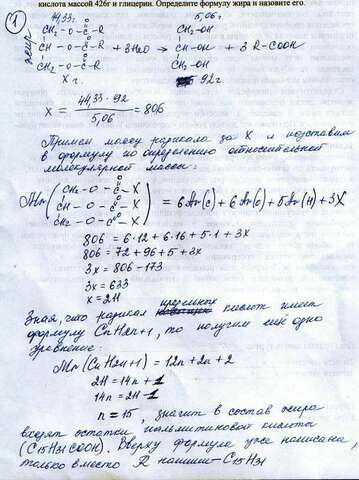 кислота массой 426г и глицерин. Определите формулу жира и назовите его.
1
44,33г. 5,06г.
жир
O
CH2 - O - C - R CH2 - OH
O
CH - O - C - R + 3H2O → CH - OH + 3 R-COOH
O
CH2 - O - C - R CH2 - OH
X г. 92г
X = 44,33 · 92 / 5,06 = 806
Примем массу радикала за X и подставим
в формулу по определению относительной
молекулярной массы:
O
CH2 - O - C - X
O
Mr ( CH - O - C - X ) = 6Ar(C) + 6Ar(O) + 5Ar(H) + 3X
O
CH2 - O - C - X
806 = 6·12 + 6·16 + 5·1 + 3X
806 = 72 + 96 + 5 + 3X
3X = 806 - 173
3X = 633
X = 211
Зная, что радикал предельных кислот имеет
формулу CnH2n+1, то получим ещё одно
уравнение:
Mr (CnH2n+1) = 12n + 2n + 1
211 = 14n + 1
14n = 211 - 1
n = 15, значит в состав жира
входят остатки пальмитиновой кислоты
(C15H31COOH). Вверху формула уже написана,
только вместо R напиши - C15H31